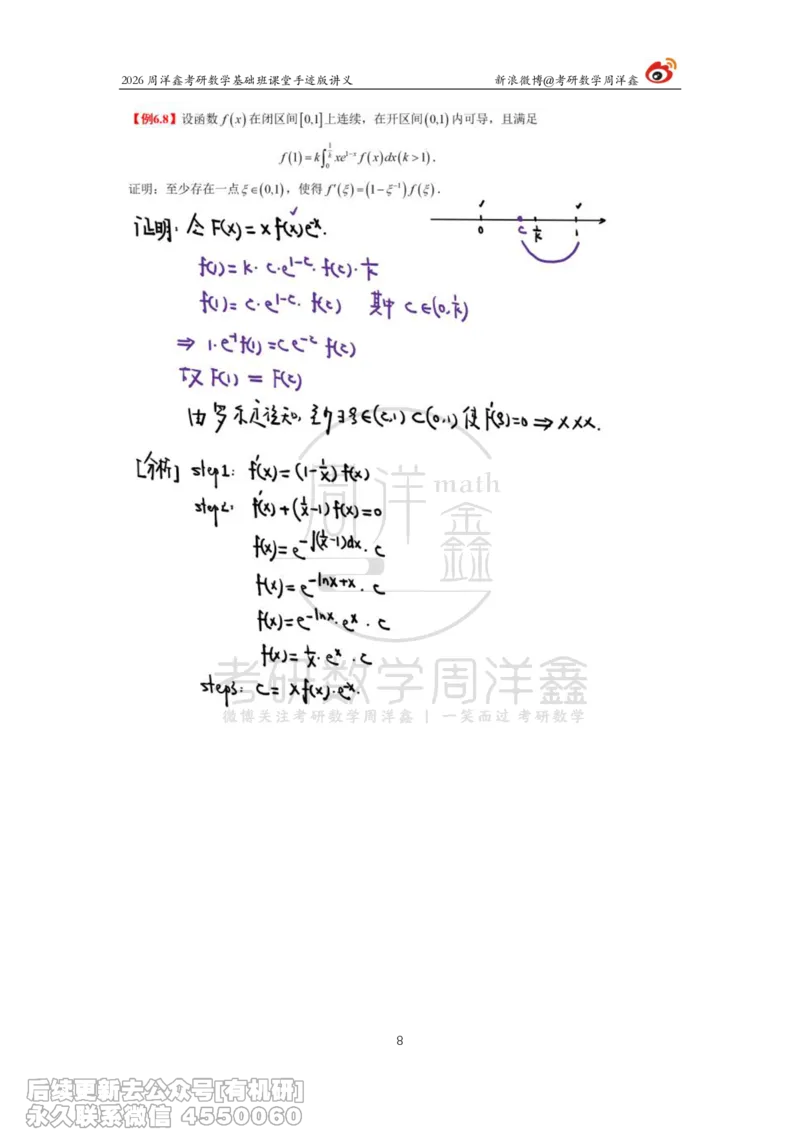 2026 周洋鑫考研数学基础班课堂手迹版讲义 新浪微博@考研数学周洋鑫
【例6.8】设函数 f(x) 在闭区间[0,1]上连续，在开区间(0,1)内可导，且满足
f(1)=k∫₀^{1/k} xe^{1-x} f(x)dx(k>1).
证明：至少存在一点 ξ∈(0,1)，使得 f′(ξ)=(1−ξ⁻¹)f(ξ).
证明：令 F(x)=x f(x)e^{-x}.
0 c 1/k 1
f(1)=k·c·e^{1-c}·f(c)·1/k
f(1)=c·e^{1-c}·f(c) 其中 c∈(0,1/k)
⇒ 1·e^{-1}f(1)=c e^{-c} f(c)
故 F(1)=F(c)
由罗尔定理知，至少∃ξ∈(c,1)⊂(0,1) 使F′(ξ)=0⇒xxx.
[分析] step1: f′(x)=(1-1/x)f(x)
step2: f′(x)+(1/x-1)f(x)=0
f(x)=e^{-∫(1/x-1)dx}·c
f(x)=e^{-lnx+x}·c
f(x)=e^{-lnx}·e^x·c
f(x)=1/x·e^x·c
step3: c=x f(x)·e^{-x}.
周洋鑫 math
考研数学周洋鑫
微博关注考研数学周洋鑫 | 一笑而过 考研数学
8
后续更新去公众号[有机研]
永久联系微信 4550060